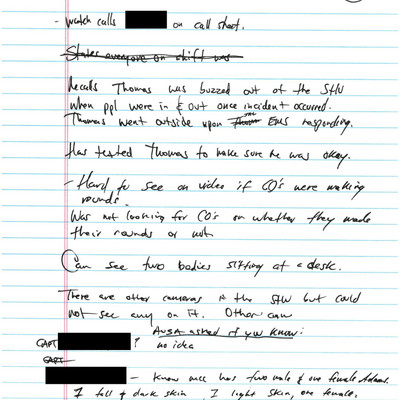 - watch calls on call sheet.
States everyone on shift was
Recalls Thomas was buzzed out of the SHU
when ppl were in & out once incident occurred.
Thomas went outside upon EMS responding.
Has texted Thomas to make sure he was okay.
- Hard to see on video if CO's were making
rounds.
Was not looking for CO's or whether they made
their rounds or not.
Can see two bodies sitting at a desk.
There are other cameras in the SHU but could
not see any on it. Other cam
AUSA asked if you know:
CAPT ? no idea
CAPT
- Know MCC has two male & one female
1 tall & dark skin, 1 light skin, one female.